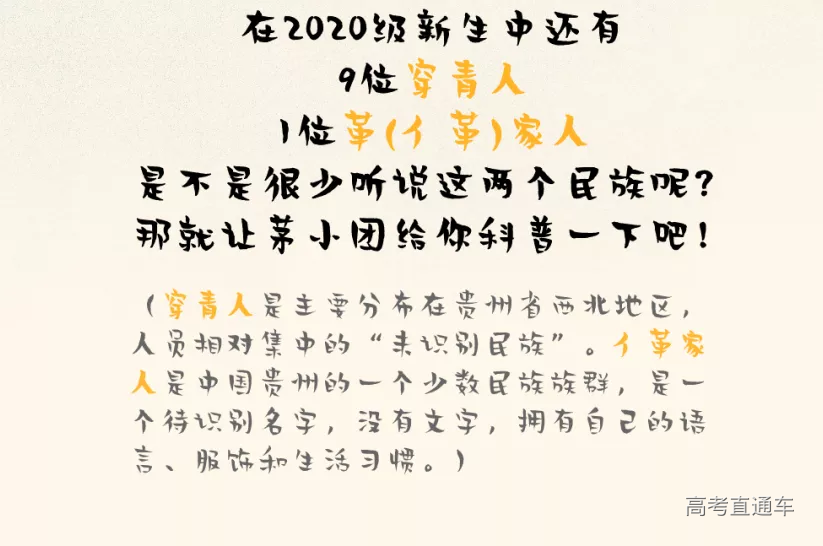 在2020级新生中还有
9位穿青人
1位革(亻革)家人
是不是很少听说这两个民族呢?
那就让茅小团给你科普一下吧!
（穿青人是主要分布在贵州省西北地区，
人员相对集中的“未识别民族”。亻革家
人是中国贵州的一个少数民族族群，是一
个待识别名字，没有文字，拥有自己的语
言、服饰和生活习惯。）
高考直通车